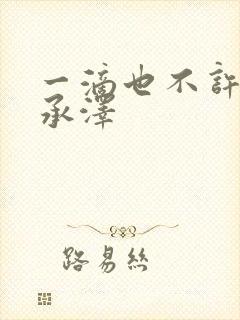 一滴也不許
承澤
路易絲